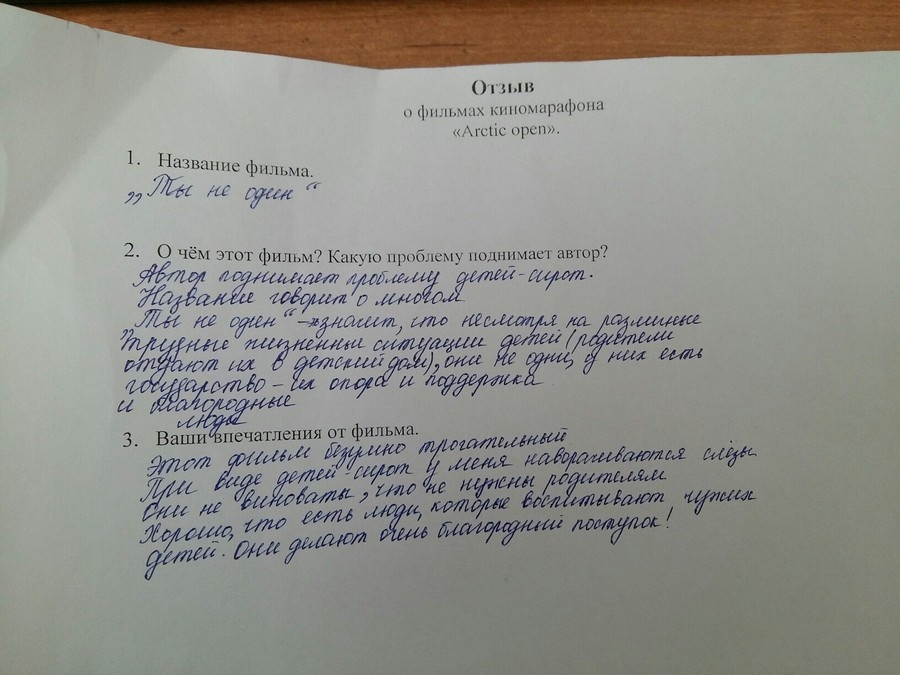 Отзыв
о фильмах киномарафона
«Arctic open».
1. Название фильма.
„Ты не один“
2. О чём этот фильм? Какую проблему поднимает автор?
Автор поднимает проблему детей-сирот.
Название говорит о многом
„Ты не один“ → значит, что несмотря на различные
трудные жизненны ситуации детей (родители
отдают их в детский дом), они не одни, у них есть
государство – их опора и поддержка
и благородные
люди
3. Ваши впечатления от фильма.
Этот фильм безумно трогательный
При виде детей-сирот у меня наворачиваются слёзы
Они не виноваты, что не нужны родителям
Хорошо, что есть люди, которые воспитывают чужих
детей. Они делают очень благородный поступок!